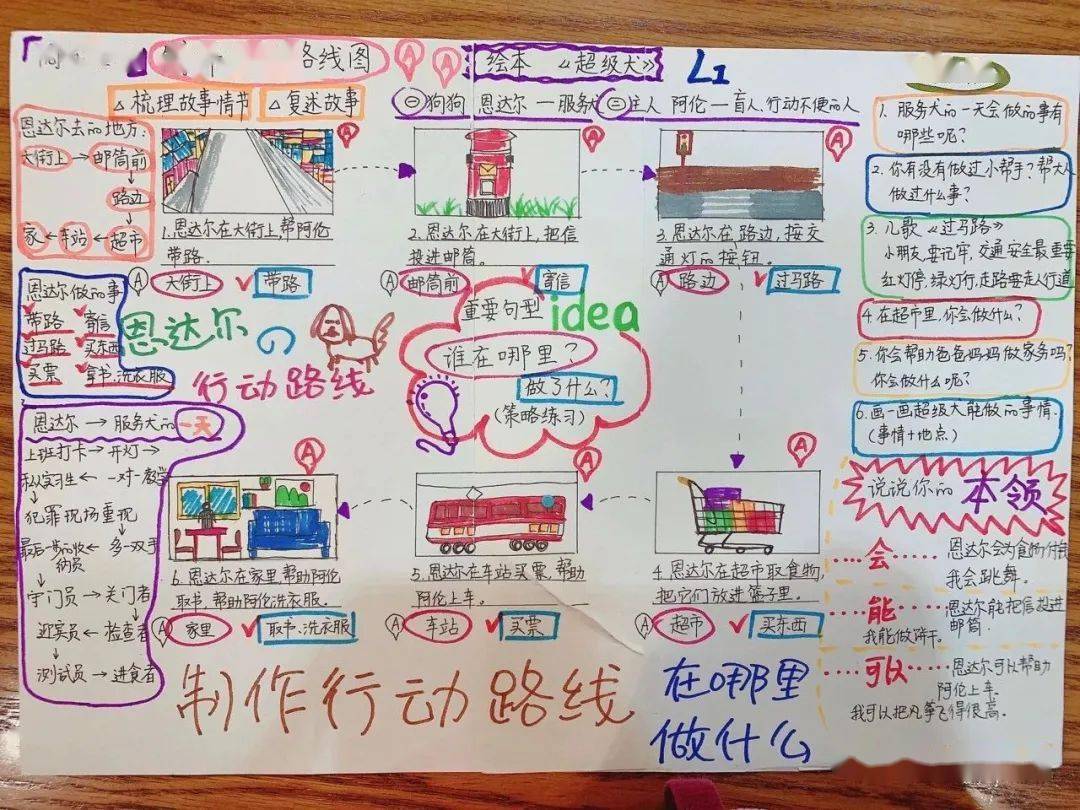 路线图
绘本 《超级犬》
L1
△梳理故事情节
△复述故事
㊀狗狗 恩达尔一服务犬
㊁主人 阿伦一盲人.行动不便的人
恩达尔去的地方:
大街上→邮筒前
↓
路边
↓
家←车站←超市
恩达尔做的事
带路 寄信
过马路 买东西
买票 拿书.洗衣服
A
1.恩达尔在大街上,帮阿伦
带路.
A 大街上 ✓带路
A
2.恩达尔在大街上,把信
投进邮筒。
A 邮筒前 ✓寄信
A
3.恩达尔在路边,按交
通灯的按钮。
A 路边 ✓过马路
恩达尔の
行动路线
重要句型
idea
谁在哪里?
做了什么?
(策略练习)
恩达尔→服务犬的一天
上班打卡→开灯→
←一对一教学
犯罪现场重现
←多一双手
守门员→关门者
迎宾员←检查者
测试员→进食者
A
6.恩达尔在家里,帮助阿伦
取书,帮助阿伦洗衣服。
A 家里 ✓取书、洗衣服
A
5.恩达尔在车站买票,帮助
阿伦上车。
A 车站 ✓买票
A
4.恩达尔在超市取食物,
把它们放进篮子里。
A 超市 ✓买东西
制作行动路线
在哪里
做什么
1.服务犬的一天会做的事有
哪些呢?
2.你有没有做过小帮手?帮大人
做过什么事?
3.儿歌《过马路》
小朋友,要记牢,交通安全最重要
红灯停,绿灯行,走路要走人行道
4.在超市里,你会做什么?
5.你会帮助爸爸妈妈做家务吗?
你会做什么呢?
6.画一画超级犬能做的事情.
(事情+地点)
说说你的本领
……会…… 恩达尔会为食物付钱
我会跳舞。
……能…… 恩达尔能把信投进
邮筒.
我能做饼干。
……可以…… 恩达尔可以帮助
阿伦上车.
我可以把风筝飞得很高.